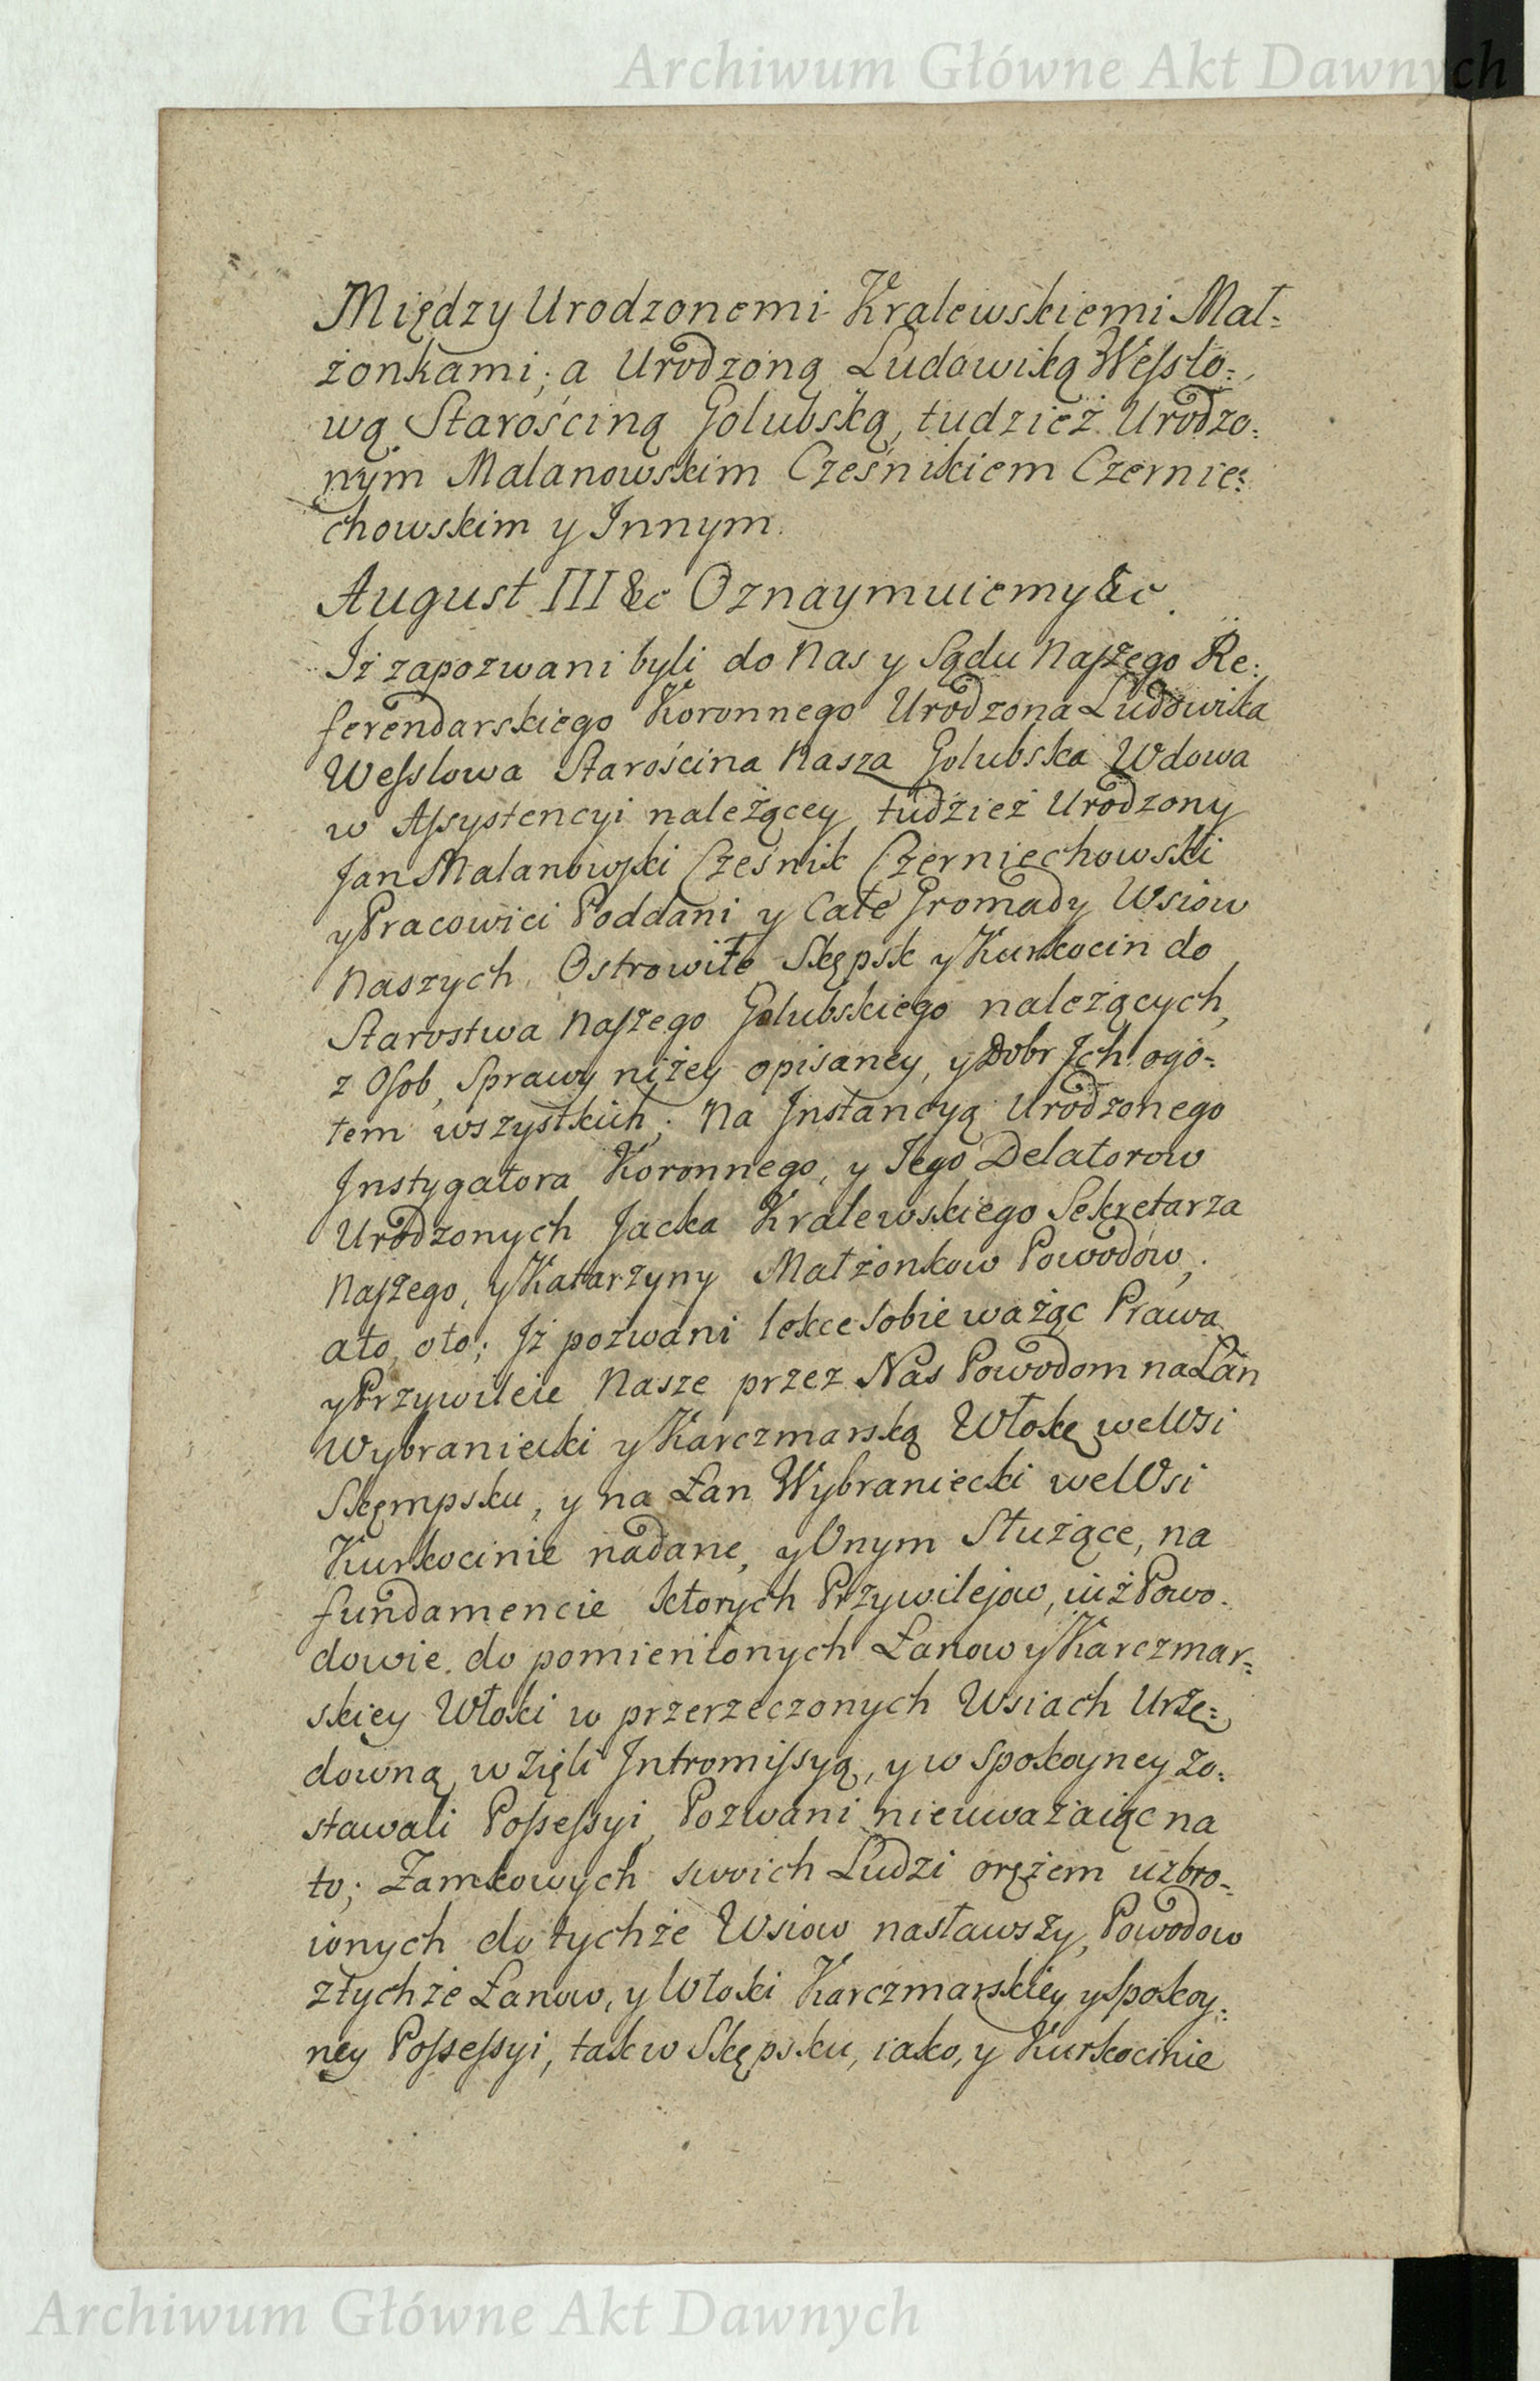 Archiwum Główne Akt Dawnych
Między Urodzonemi Kralewskiemi Mał=
żonkami; a Urodzoną Ludowiką Wessło=
wą Starościną Golubską, tudzież Urodzo=
nym Malanowskim Cześnikiem Czernie=
chowskim y Innym.
August III &c Oznaymuiemy &c.
Iż zapozwani byli do Nas y Sądu Naszego Re=
ferendarskiego Koronnego Urodzona Ludowika
Wesslowa Starościna Nasza Golubska Wdowa
w Assystencyi należącey, tudzież Urodzony
Jan Malanowski Cześnik Czerniechowski
y Pracowici Poddani y Całe Gromady Wsiow
Naszych Ostrowite Skępsk y Kurkocin do
Starostwa Naszego Golubskiego należących,
z Osob, Sprawy niżey opisaney, y Dobr Jch ogo=
łem wszystkich; Na Jnstancyą Urodzonego
Jnstygatora Koronnego, y Jego Delatorow
Urodzonych Jacka Kralewskiego Sekretarza
Naszego, y Katarzyny Małżonkow Powodów,
ato, oto; Jż pozwani lekce sobie ważąc Prawa
y Przywileie Nasze przez Nas Powodom na Łan
Wybraniecki y Karczmarską Włokę we Wsi
Skęmpsku, y na Łan Wybraniecki we Wsi
Kurkocinie nadane, y Onym Służące, na
fundamencie ktorych Przywilejow, iuż Powo=
dowie do pomienionych Łanow y Karczmar=
skiey Włoki w przerzeczonych Wsiach Urzę=
downą wzięli Jntromissyą, y w spokoyney zo=
stawali Possessyi, Pozwani nieuważaiąc na
to; Zamkowych swoich Ludzi orężem uzbro=
ionych do tychże Wsiow nasławszy, Powodow
z tychże Łanow, y Włoki Karczmarskiey y spokoy=
ney Possessyi, tak w Skępsku, iako, y Kurkocinie
Archiwum Główne Akt Dawnych